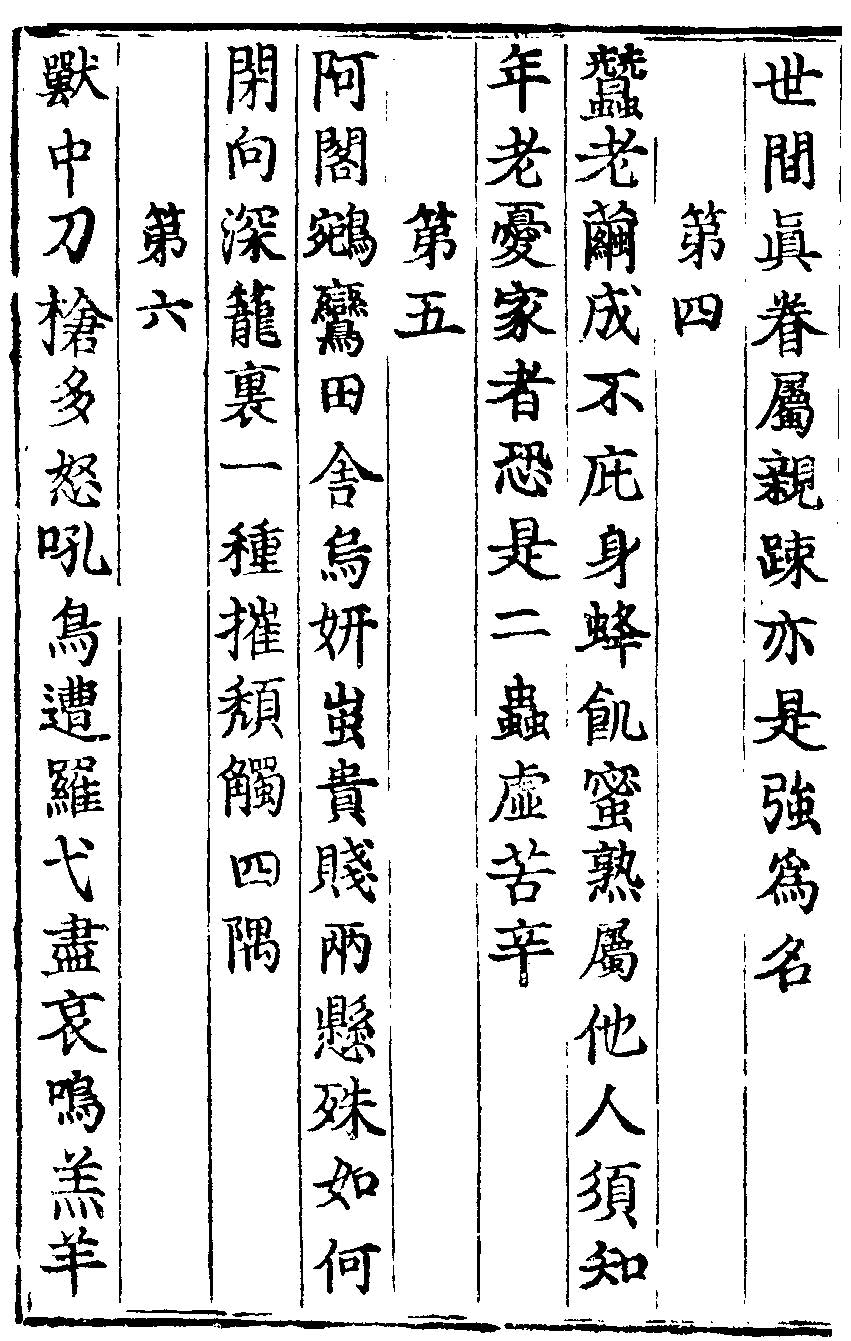 世間眞眷屬親踈亦是強爲名
第四
蠶老繭成不庇身蜂飢蜜熟屬他人須知
年老憂家者恐是二蟲虛苦辛
第五
阿閣鵷鸞田舍烏妍蚩貴賤兩懸殊如何
閉向深籠裏一種摧頹觸四隅
第六
獸中刀槍多怒吼鳥遭羅弋盡哀鳴羔羊